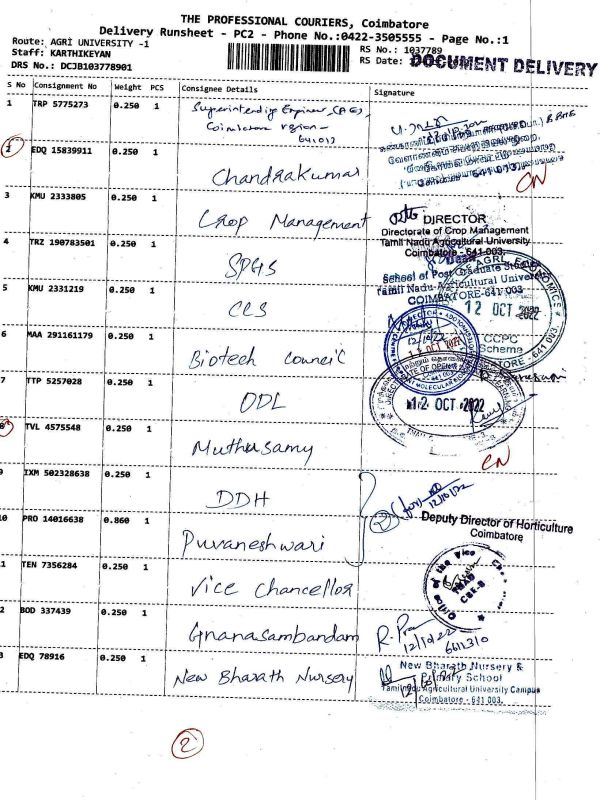 THE PROFESSIONAL COURIERS, Coimbatore
Delivery Runsheet - PC2 - Phone No.:0422-3505555 - Page No.:1
Route: AGRI UNIVERSITY -1
Staff: KARTHIKEYAN
DRS No.: DCJB103778901
RS No.: 1037789
RS Date:
DOCUMENT DELIVERY
S No Consignment No Weight PCS Consignee Details Signature
1 TRP 5775273 0.250 1 Superintending Engineer, (AE),
Coimbatore region -
641013
2 EDQ 15839911 0.250 1 Chandrakumar
CN
3 KMU 2333805 0.250 1 Crop Management
DIRECTOR
Directorate of Crop Management
Tamil Nadu Agricultural University
Coimbatore - 641 003.
4 TRZ 190783501 0.250 1 SPGS
Dean
School of Post Graduate Studies
Tamil Nadu Agricultural University
COIMBATORE-641 003
5 KMU 2331219 0.250 1 CCS
12 OCT 2022
CCPC
Scheme
6 MAA 291161179 0.250 1 Biotech Council
12/10/22
7 TTP 5257028 0.250 1 ODL
12 OCT 2022
8 TVL 4575548 0.250 1 Muthusamy
CN
9 IXM 502328638 0.250 1 DDH
(for)
12/10/22
10 PRO 14016638 0.860 1 Puvaneshwari
2
Deputy Director of Horticulture
Coimbatore
1 TEN 7356284 0.250 1 Vice Chancellor
Office of the Vice
TNAU
CBE-3
2 BOD 337439 0.250 1 Gnanasambandam
12/10/22
6612310
3 EDQ 78916 0.250 1 New Bharath Nursery
New Bharath Nursery &
Primary School
Tamilnadu Agricultural University Campus
Coimbatore - 641 003.
2